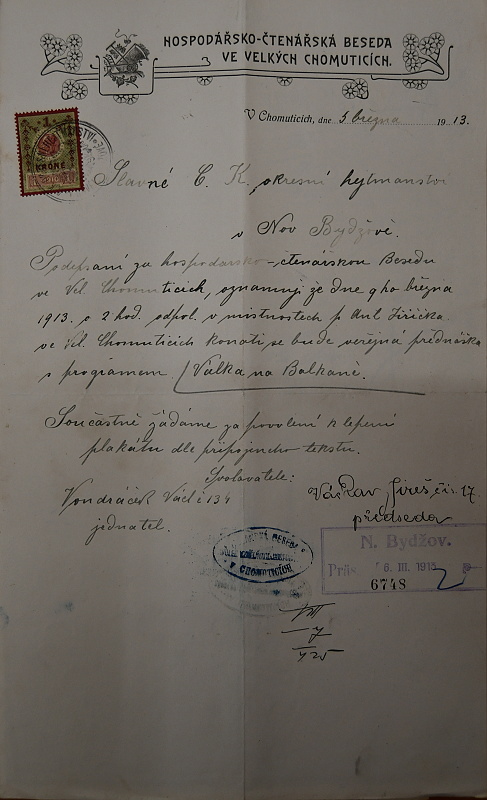 HOSPODÁŘSKO-ČTENÁŘSKÁ BESEDA
VE VELKÝCH CHOMUTICÍCH.
V Chomuticích, dne 5 března 1913.
1
KRONE
Slavné C. K. okresní hejtmanství
v Nov Bydžově.
Podepsaní za hospodářsko-čtenářskou Besedu
ve Vel. Chomuticích, oznamují že dne 9ho března
1913. o 2 hod. odpol. v místnostech p Ant. Jiřička
ve Vel. Chomuticích konati se bude veřejná přednáška
s programem Válka na Balkaně.
Součastně žádáme za povolení k lepení
plakátu dle připojeneho textu.
Svolavatelé:
Vondráček Václ č 134
jednatel.
Václav Jireš čís. 17.
předseda
V CHOMUTICÍCH
N. Bydžov.
Präs. 6. III. 1913
6748
VIII
7
425